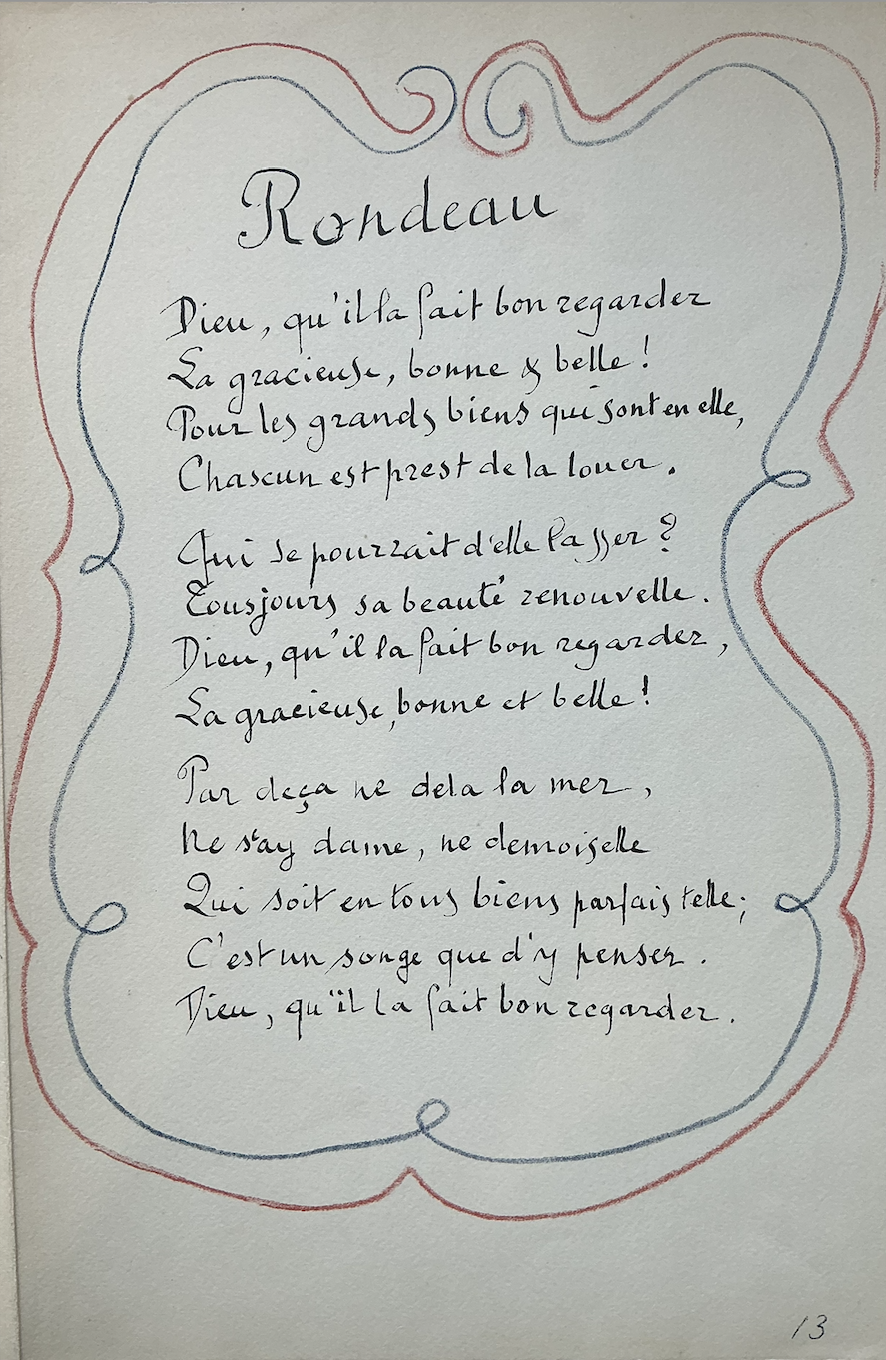 Rondeau
Dieu, qu'il la fait bon regarder
La gracieuse, bonne & belle !
Pour les grands biens qui sont en elle,
Chascun est prest de la louer.
Qui se pourrait d'elle lasser ?
Tousjours sa beauté renouvelle.
Dieu, qu'il la fait bon regarder,
La gracieuse, bonne et belle !
Par deça ne dela la mer,
Ne s'ay dame, ne demoiselle
Qui soit en tous biens parfais telle;
C'est un songe que d'y penser.
Dieu, qu'il la fait bon regarder.
13